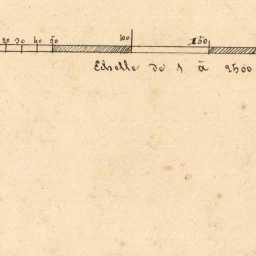 20 30 40 50 100 150
Echelle de 1 à 2500